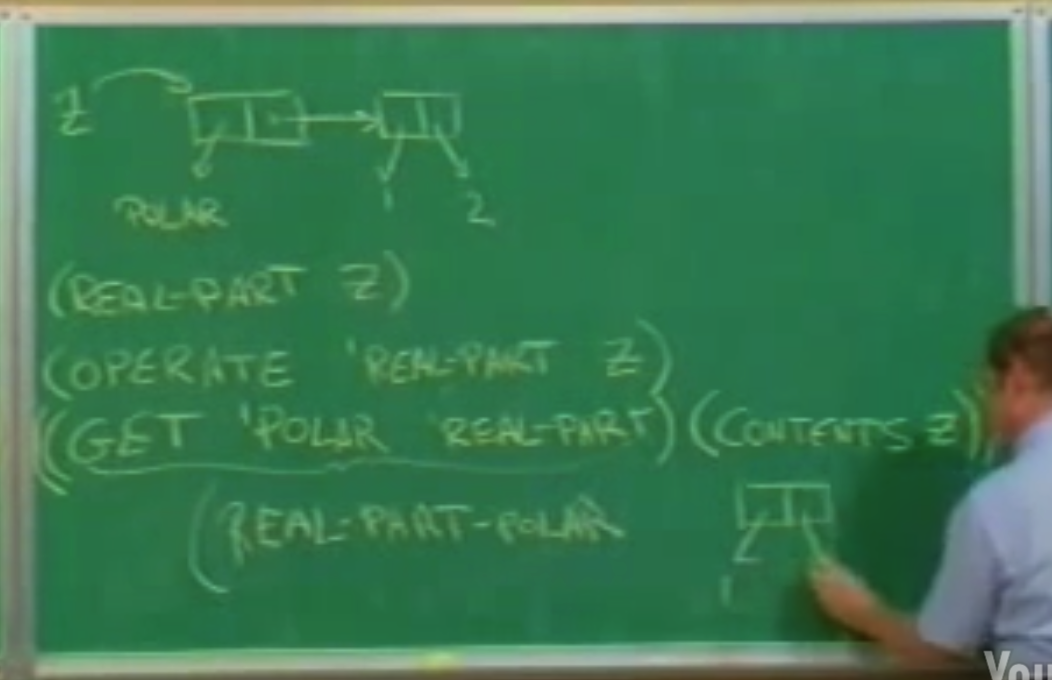 Z
POLAR 1 2
(REAL-PART Z)
(OPERATE 'REAL-PART Z)
((GET 'POLAR 'REAL-PART) (CONTENTS Z))
(REAL-PART-POLAR
1
You